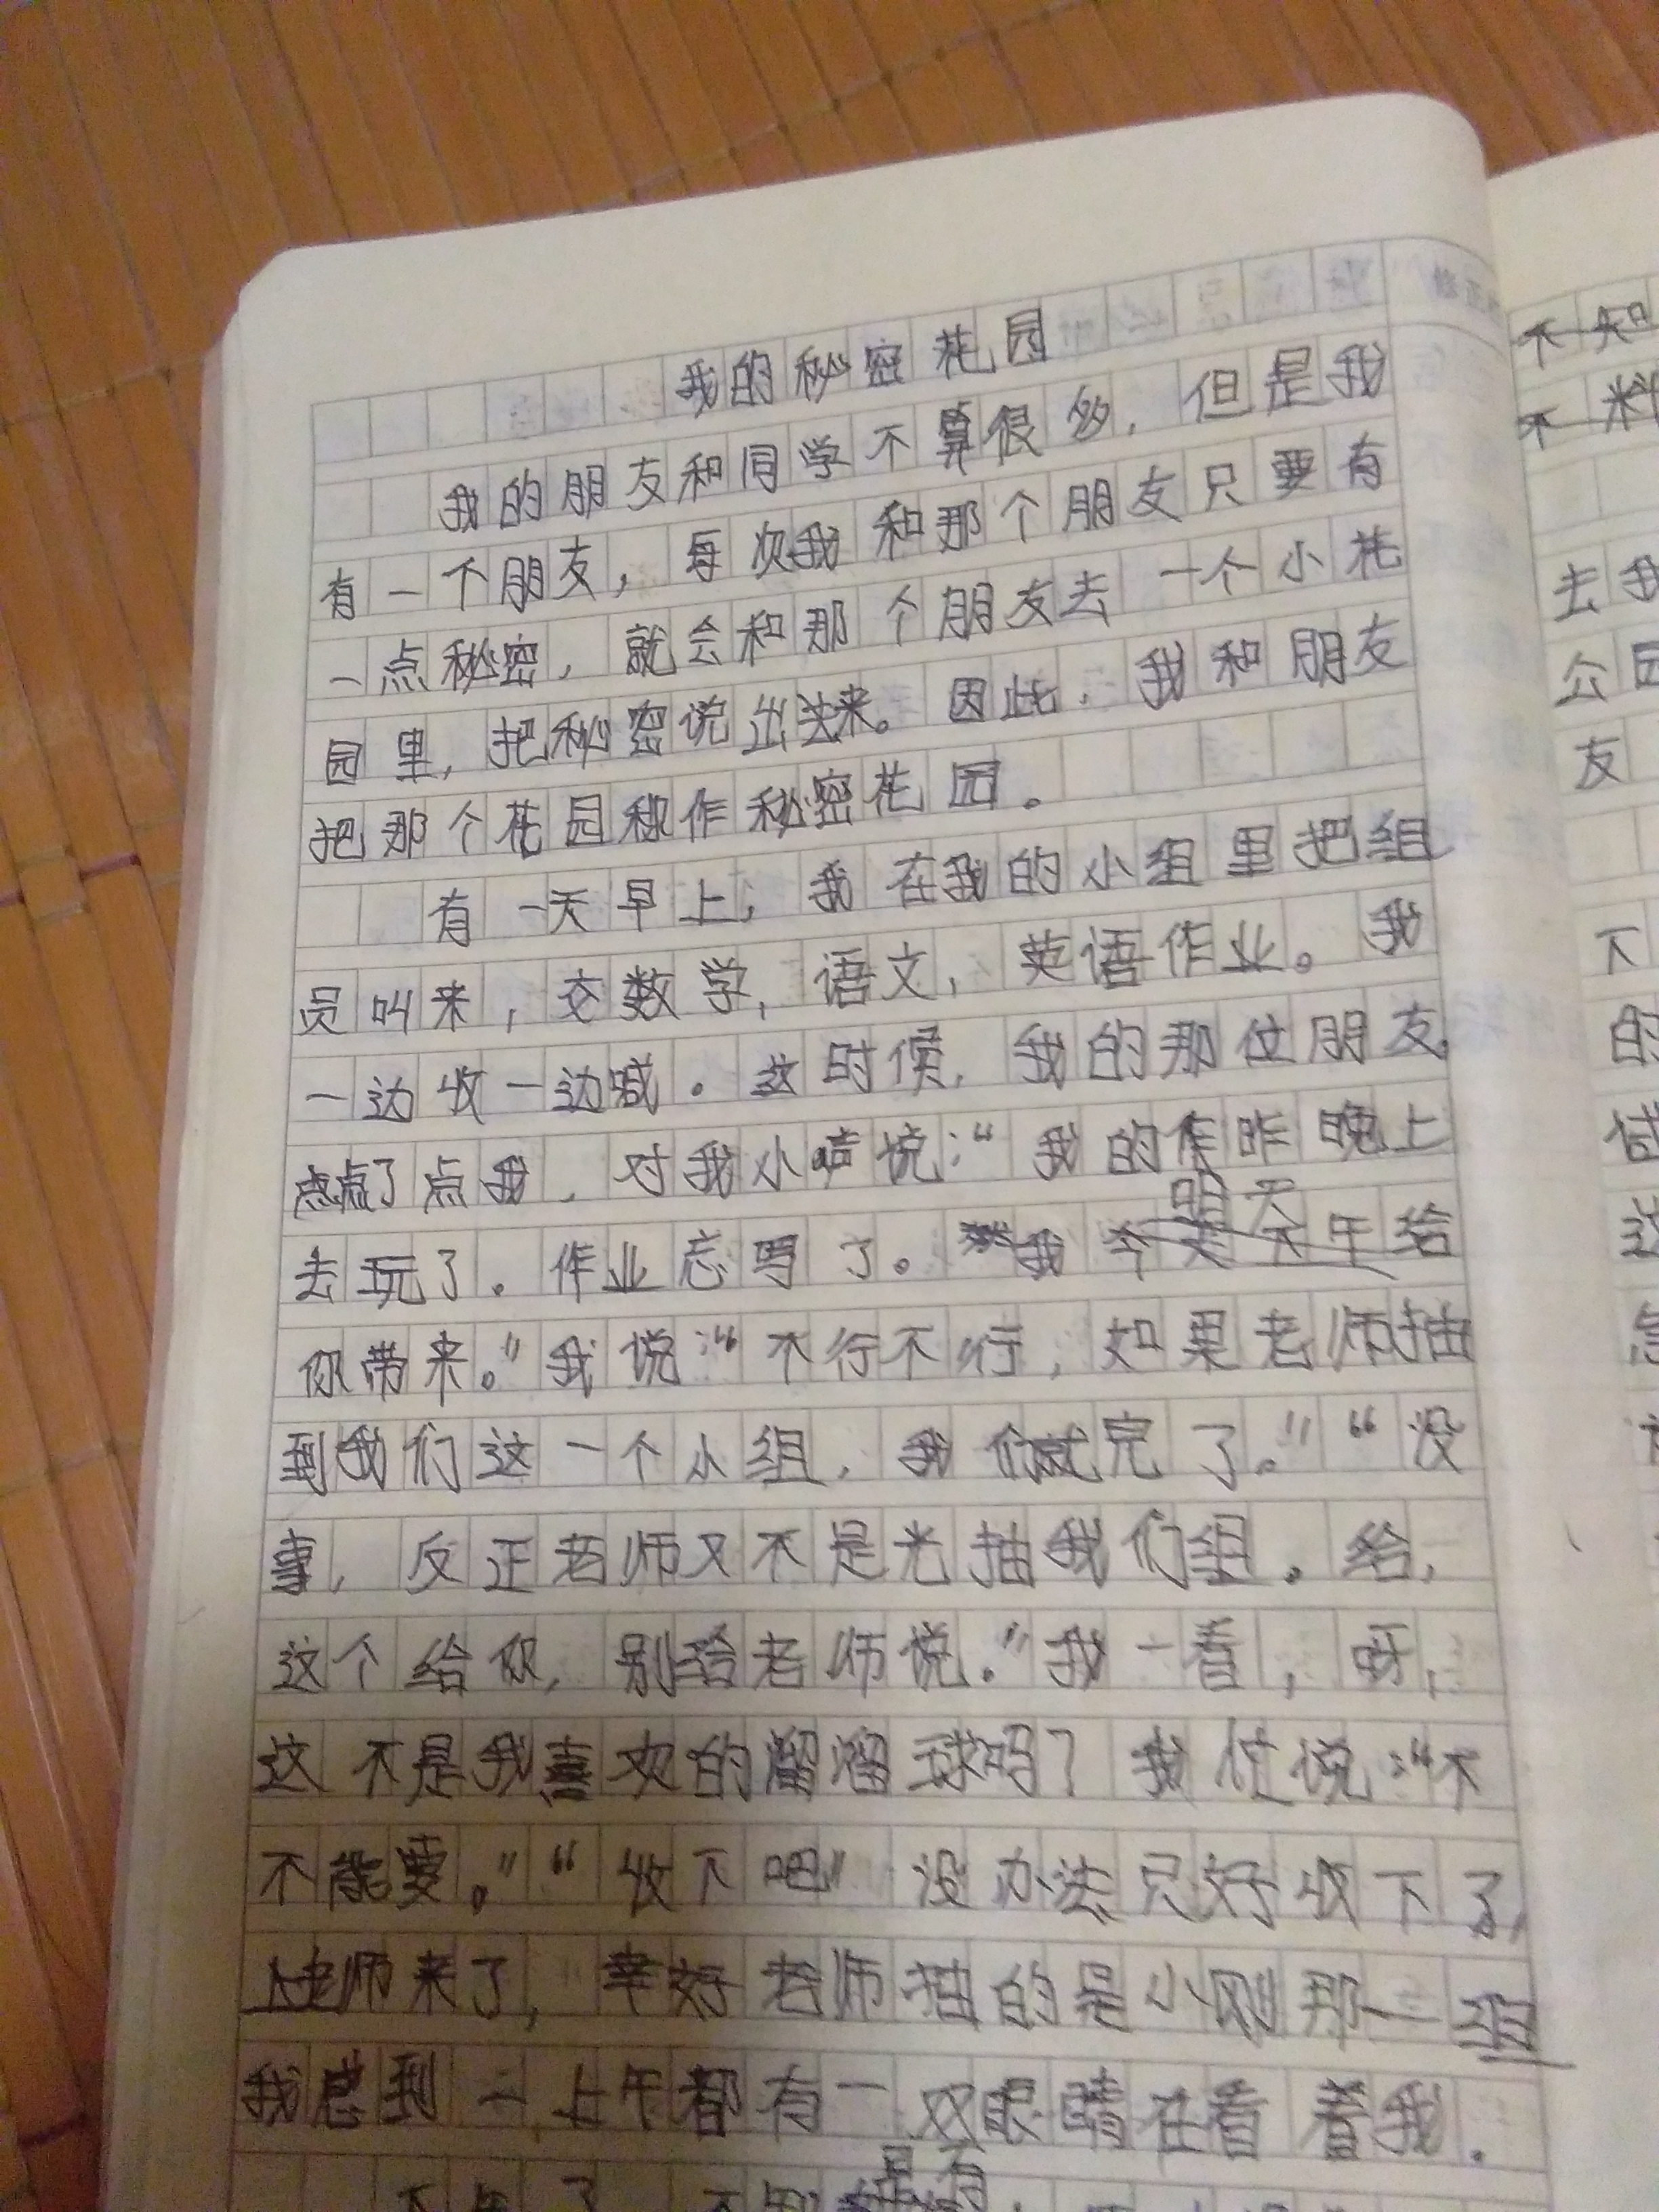 我的秘密花园
我的朋友和同学不算很多，但是我
有一个朋友，每次我和那个朋友只要有
一点秘密，就会和那个朋友去一个小花
园里，把秘密说出来。因此，我和朋友
把那个花园称作秘密花园。
有一天早上，我在我的小组里把组
员叫来，交数学，语文，英语作业。我
一边收一边喊。这时候，我的那位朋友
点了点我，对我小声说：“我的昨晚上
去玩了。作业忘写了。我明天给
你带来。”我说：“不行不行，如果老师抽
到我们这一个小组，我们就完了。”“没
事，反正老师又不是光抽我们组。给，
这个给你，别给老师说。”我一看，呀，
这不是我喜欢的溜溜球吗？我忙说：“不
不能要。”“收下吧”没办法只好收下了，
老师来了，幸好老师抽的是小刚那一组
我感到一上午都有一双眼睛在看着我。
不知
不料
去我
公园
友
不
的